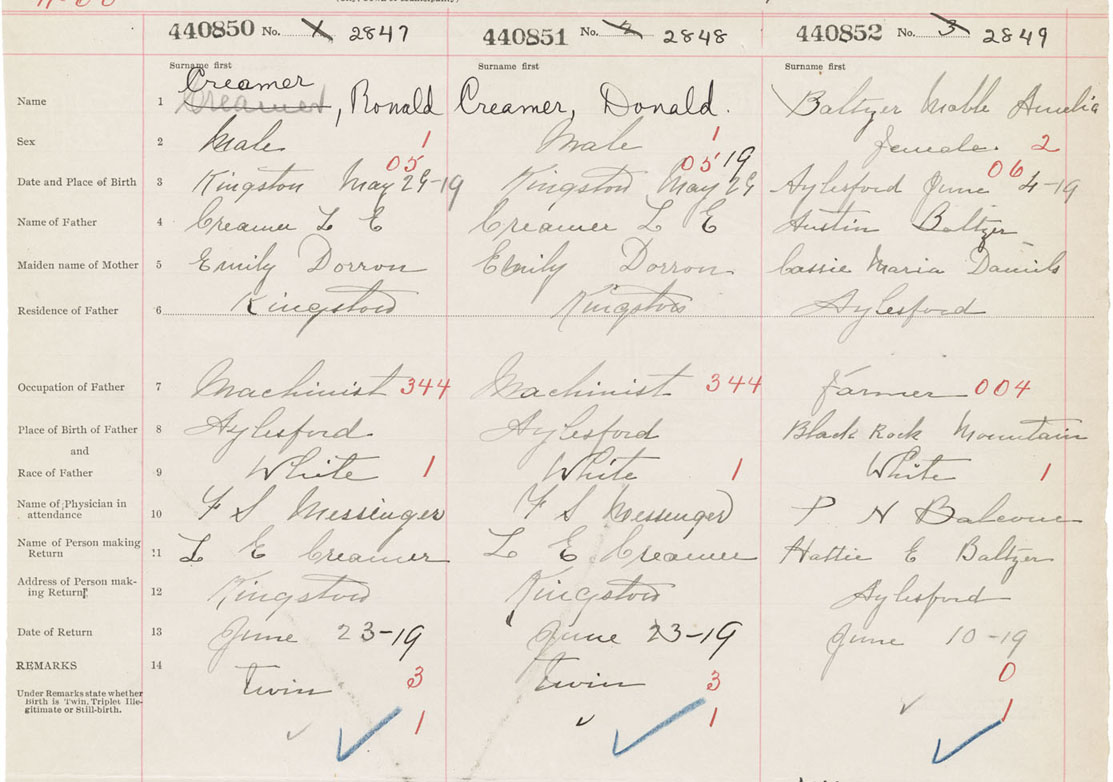 440850 No. 1 2847 440851 No. 2 2848 440852 No. 3 2849
Surname first Surname first Surname first
Creamer
Name 1 Creamer, Ronald Creamer, Donald. Baltzer Mable Amelia
Sex 2 Male 1 Male 1 female. 2
05 05 19 06
Date and Place of Birth 3 Kingston May 29-19 Kingston May 29 Aylesford June 4-19
Name of Father 4 Creamer L E Creamer L E Austin Baltzer
Maiden name of Mother 5 Emily Dorron Emily Dorron Cassie Maria Daniels
Residence of Father 6 Kingston Kingston Aylesford
Occupation of Father 7 Machinist 344 Machinist 344 farmer 004
Place of Birth of Father 8 Aylesford Aylesford Black Rock Mountain
and
Race of Father 9 White 1 White 1 White 1
Name of Physician in
attendance 10 F S Messenger F S Messenger P N Balcome
Name of Person making
Return 11 L E Creamer L E Creamer Hattie E Baltzer
Address of Person mak-
ing Return 12 Kingston Kingston Aylesford
Date of Return 13 June 23-19 June 23-19 June 10-19
REMARKS 14 Twin 3 Twin 3 0
Under Remarks state whether
Birth is Twin, Triplet Ille-
gitimate or Still-birth.
1 1 1